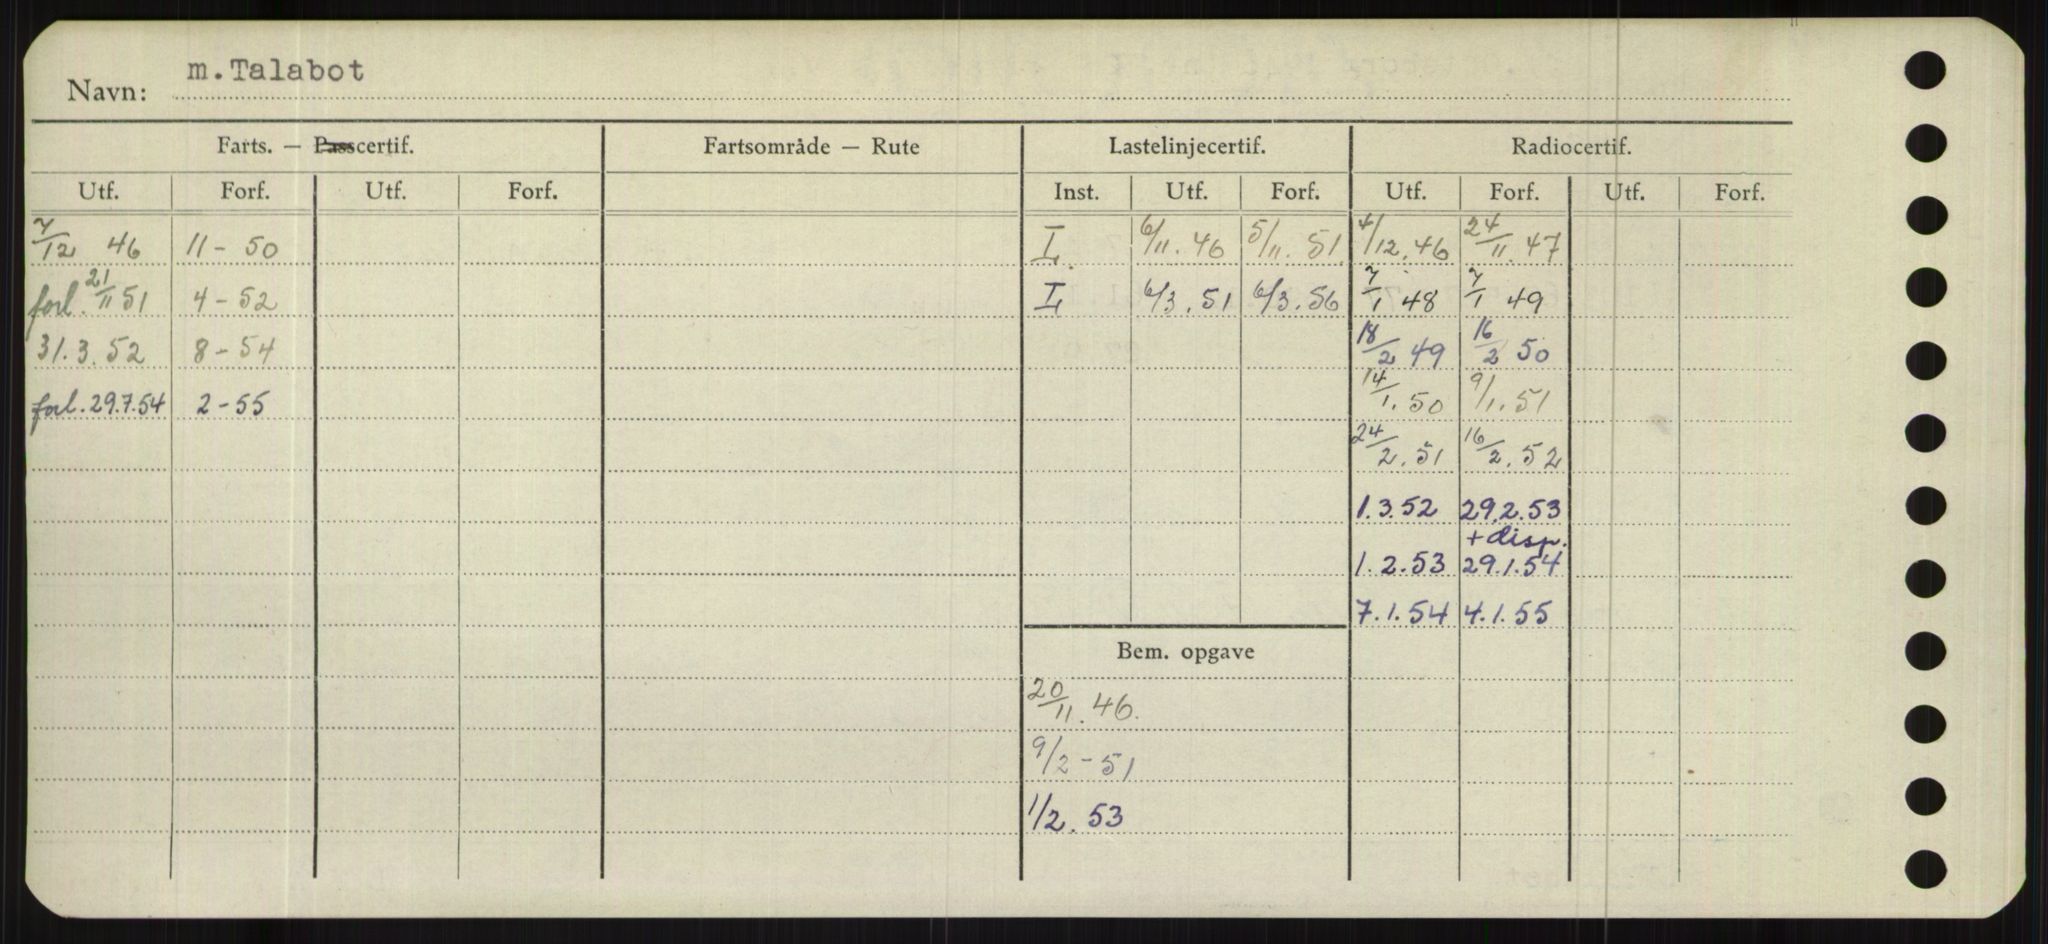 Navn: m.Talabot
Farts. — Passcertif. Fartsområde — Rute Lastelinjecertif. Radiocertif.
Utf. Forf. Utf. Forf. Inst. Utf. Forf. Utf. Forf. Utf. Forf.
7/12 46 11 - 50 I. 6/11. 46 5/11. 51. 4/12. 46 24/11. 47
forl. 21/11 51 4 - 52 I 6/3. 51 6/3. 56 7/1 48 7/1 49
31. 3. 52 8 - 54 18/2 49 16/2 50
forl. 29.7.54 2 - 55 14/1. 50 9/1. 51
24/2. 51 16/2. 52
1.3.52 29.2.53
+ disp.
1.2.53 29.1.54
7.1.54 4.1.55
Bem. opgave
20/11. 46.
9/2 - 51
1/2. 53